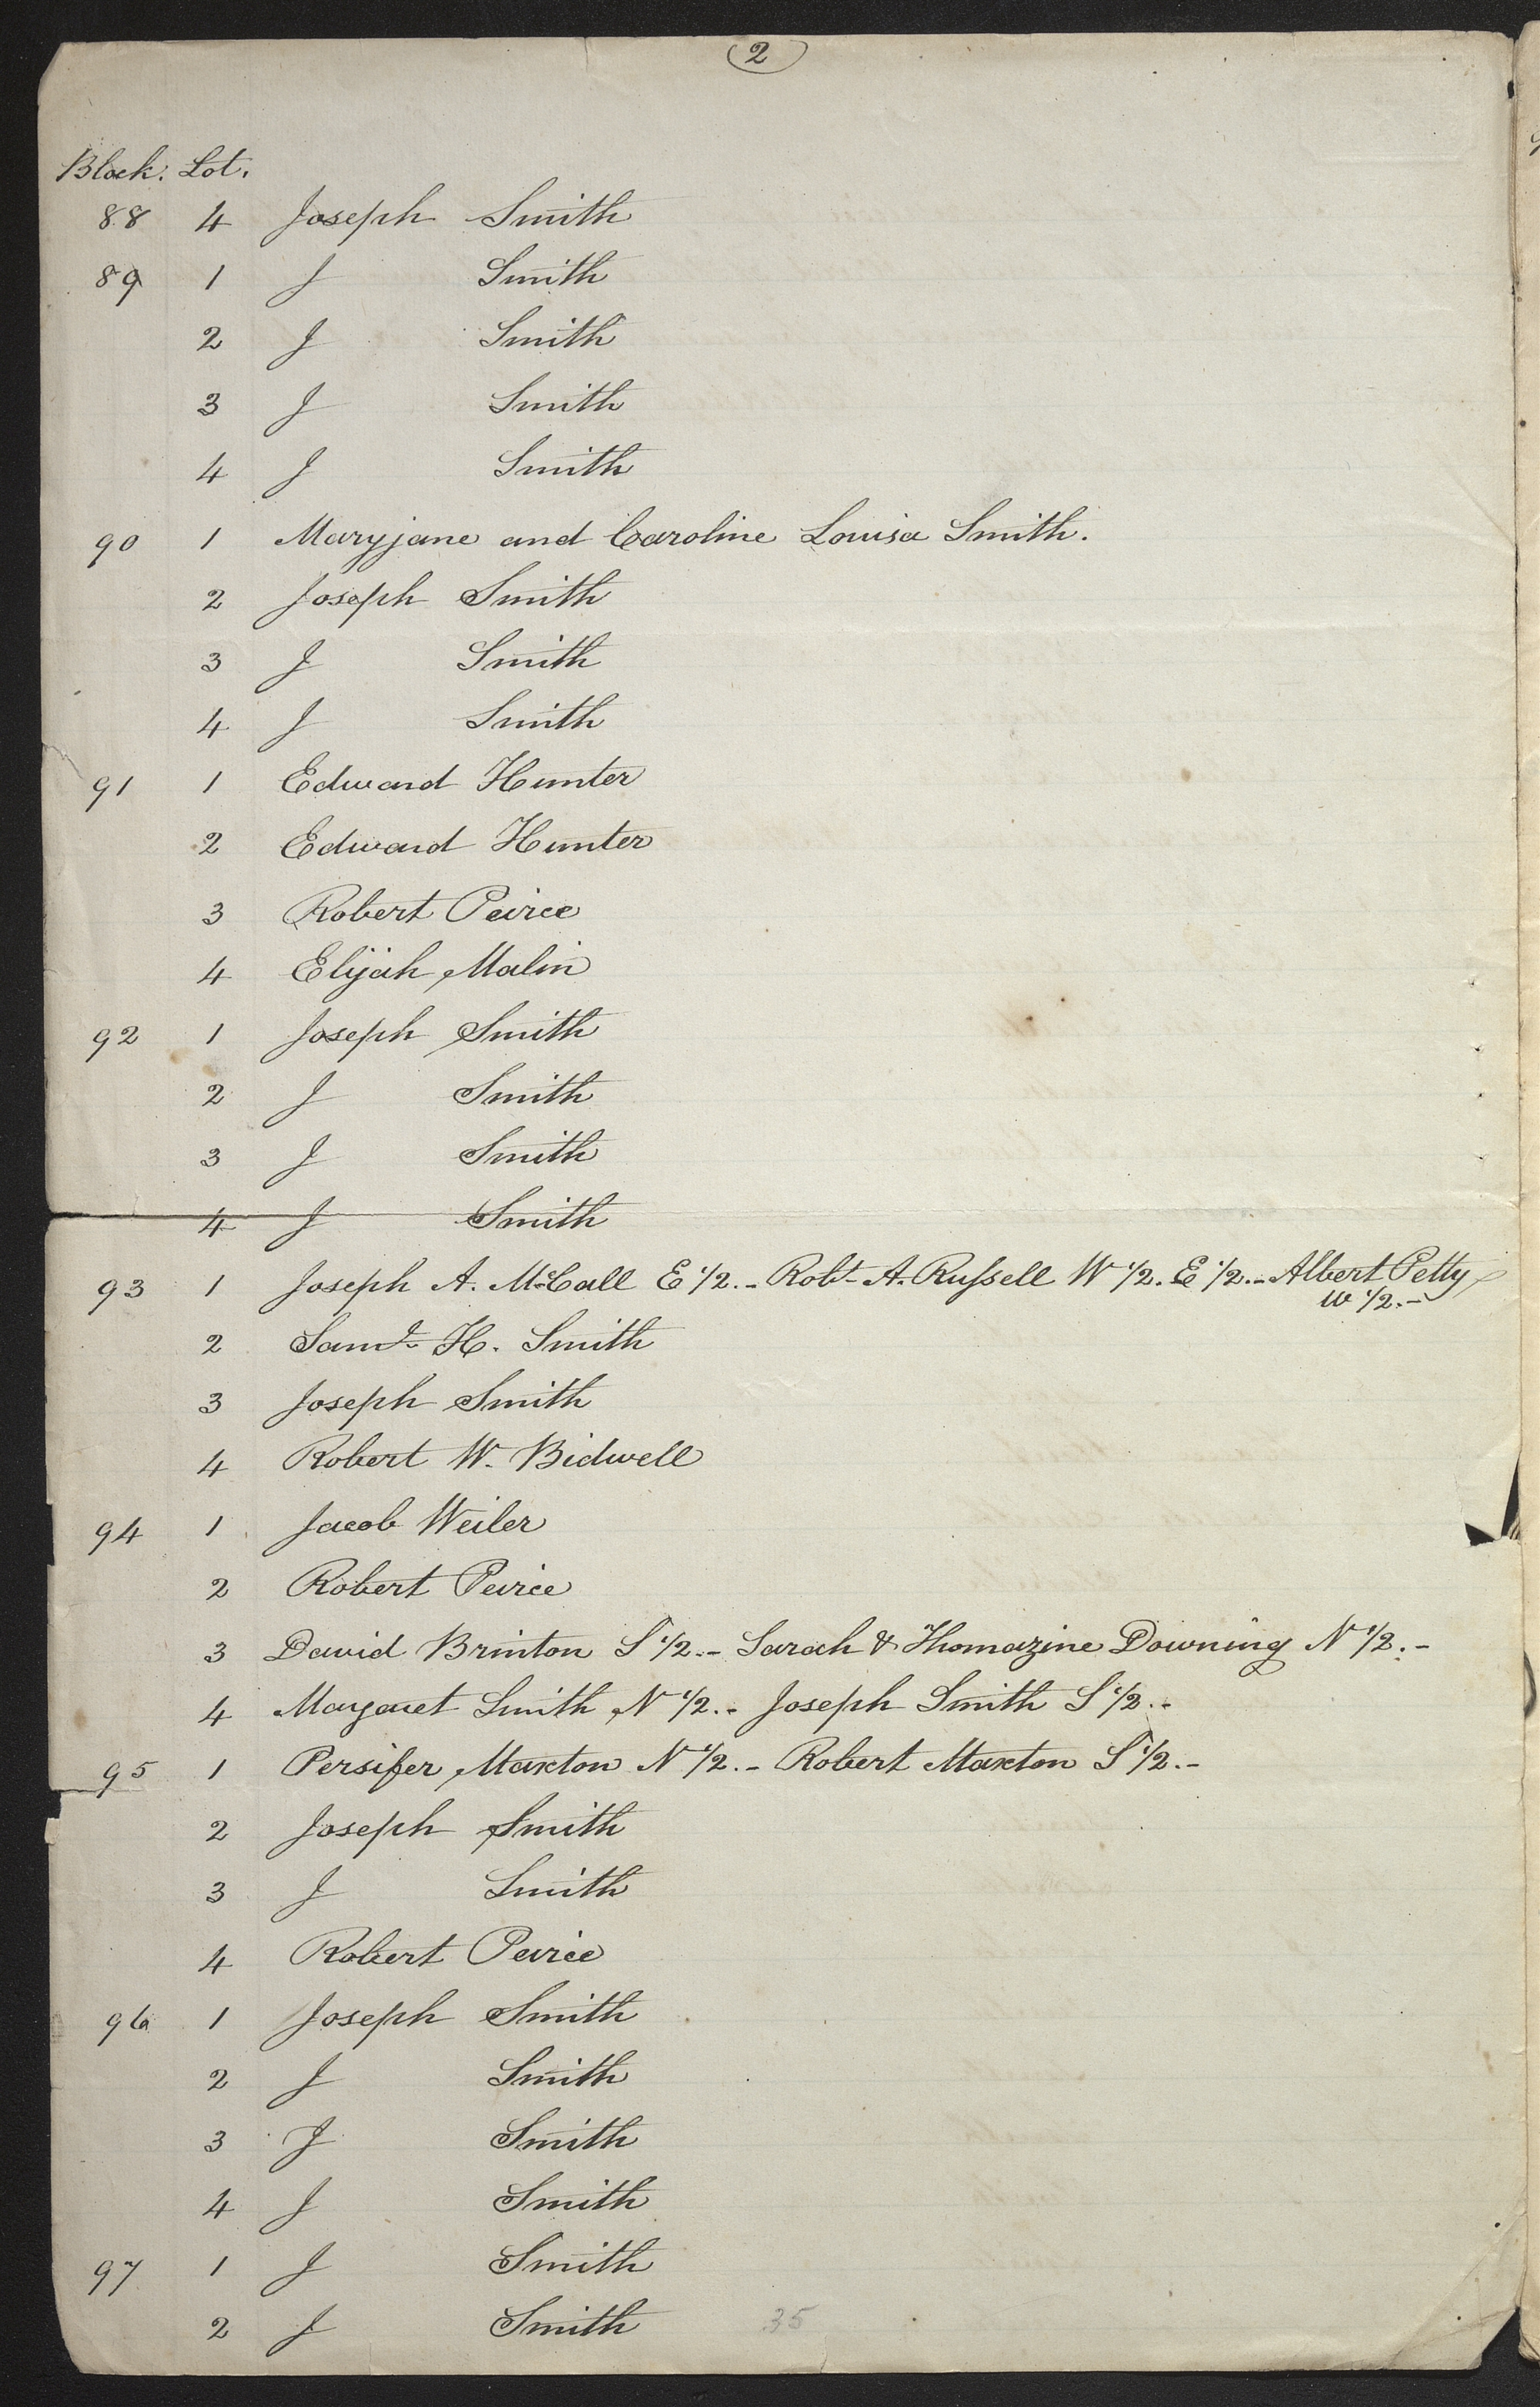 2
Block. Lot.
88 4 Joseph Smith
89 1 J Smith
2 J Smith
3 J Smith
4 J Smith
90 1 Maryjane and Caroline Louisa Smith.
2 Joseph Smith
3 J Smith
4 J Smith
91 1 Edward Hunter
2 Edward Hunter
3 Robert Peirce
4 Elijah Malin
92 1 Joseph Smith
2 J Smith
3 J Smith
4 J Smith
93 1 Joseph A. McCall E 1/2.- Robt A. Russell W 1/2. E 1/2.- Albert Petty
W 1/2.-
2 Saml H. Smith
3 Joseph Smith
4 Robert W. Bidwell
94 1 Jacob Weiler
2 Robert Peirce
3 David Brinton S 1/2.- Sarah & Thomazine Downing N 1/2.-
4 Margaret Smith N 1/2.- Joseph Smith S 1/2.-
95 1 Persifer Maxton N 1/2.- Robert Maxton S 1/2.-
2 Joseph Smith
3 J Smith
4 Robert Peirce
96 1 Joseph Smith
2 J Smith
3 J Smith
4 J Smith
97 1 J Smith
2 J Smith
35